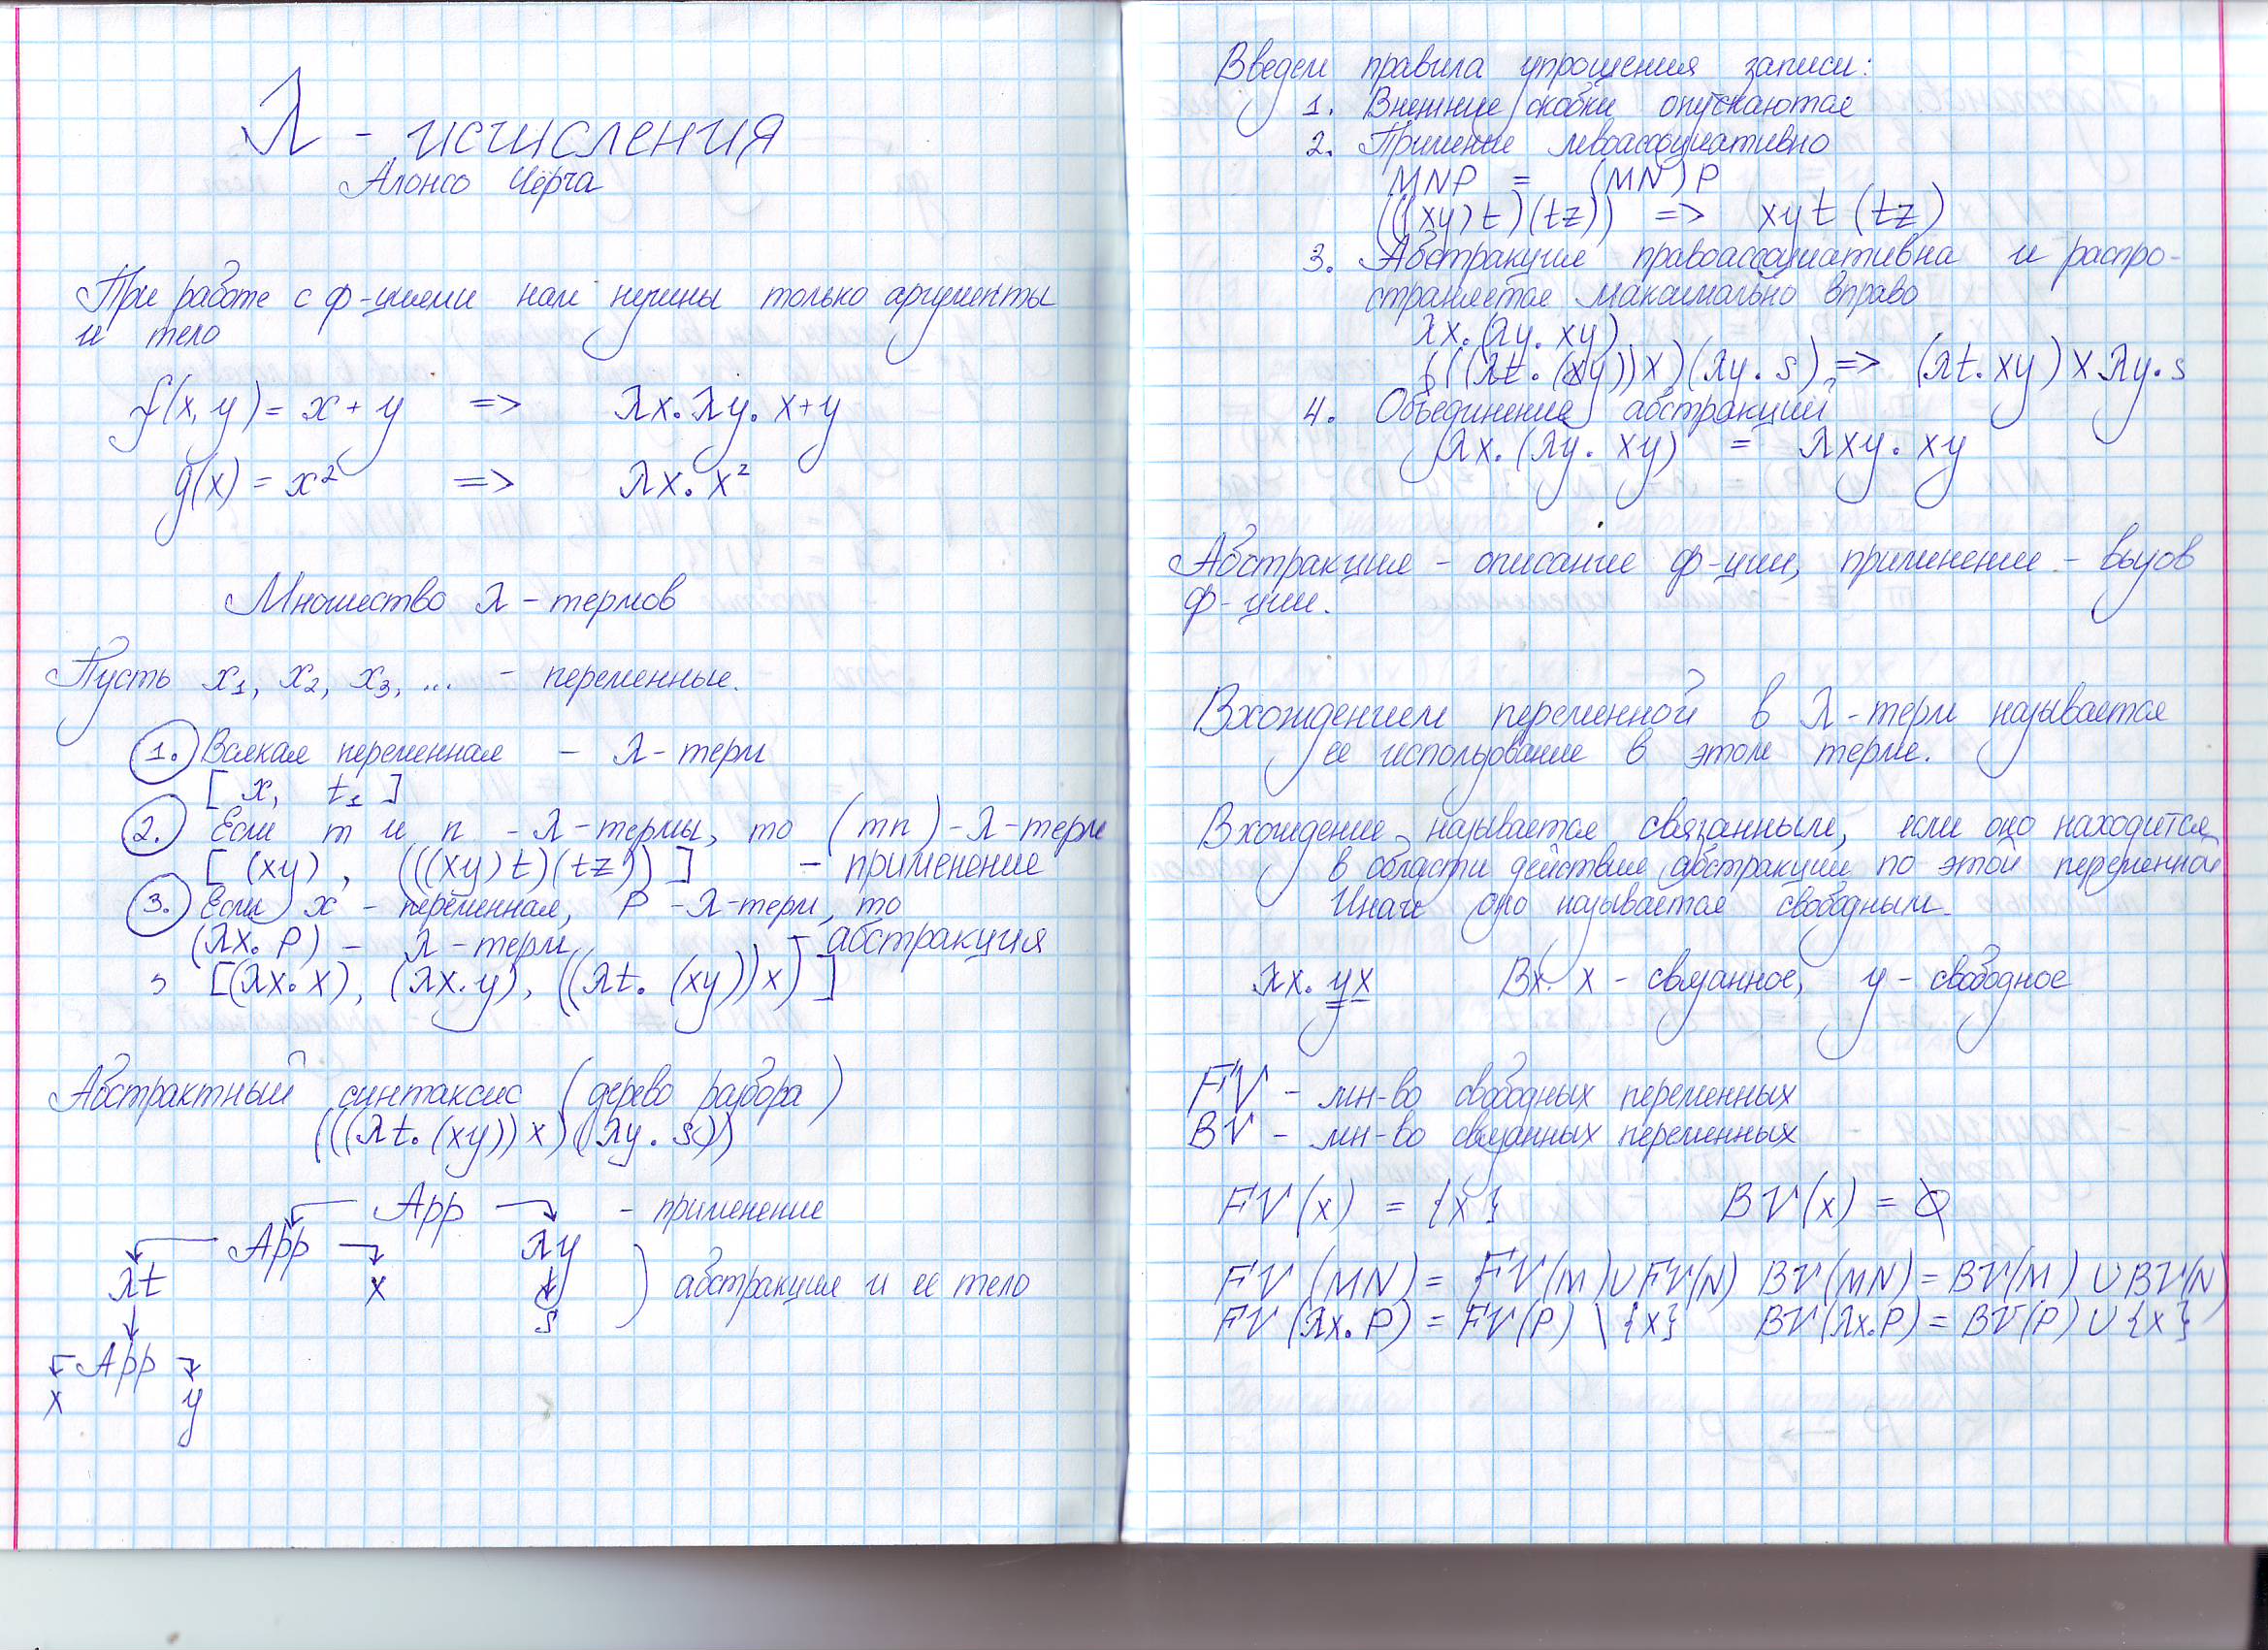 λ - исчисления
Алонсо Чёрча
При работе с ф-циями нам нужны только аргументы
и тело
f(x, y) = x + y => λx. λy. x+y
g(x) = x² => λx. x²
Множество λ - термов
Пусть x₁, x₂, x₃, ... - переменные.
1. Всякая переменная - λ - терм
[ x, t₁ ]
2. Если m и n - λ - термы, то (mn) - λ - терм
[ (xy) , (((xy) t)(tz)) ] - применение
3. Если x - переменная, P - λ-терм, то
(λx. P) - λ - терм - абстракция
[(λx. x), (λx. y), ((λt. (xy))x) ]
Абстрактный синтаксис (дерево разбора)
(((λt. (xy)) x) (λy. s))
App - применение
App λy
λt x s ) абстракция и ее тело
App
x y
Введем правила упрощения записи:
1. Внешние скобки опускаются
2. Примение левоассоциативно
MNP = (MN)P
(((xy) t)(tz)) => xyt (tz)
3. Абстракция правоассоциативна и распро-
страняется максимально вправо
λx. (λy. xy)
(((λt. (xy))x)(λy. s) => (λt. xy) x λy. s
4. Объединение абстракций
λx. (λy. xy) = λxy. xy
Абстракция - описание ф-ции, применение - вызов
ф-ции.
Вхождением переменной в λ-терм называется
ее использование в этом терме.
Вхождение называется связанным, если оно находится
в области действия абстракции по этой переменной
Иначе оно называется свободным.
λx. yx Вх. x - связанное, y - свободное
FV - мн-во свободных переменных
BV - мн-во связанных переменных
FV(x) = {x} BV(x) = ∅
FV(MN) = FV(M) ∪ FV(N) BV(MN) = BV(M) ∪ BV(N)
FV(λx. P) = FV(P) \ {x} BV(λx. P) = BV(P) ∪ {x}